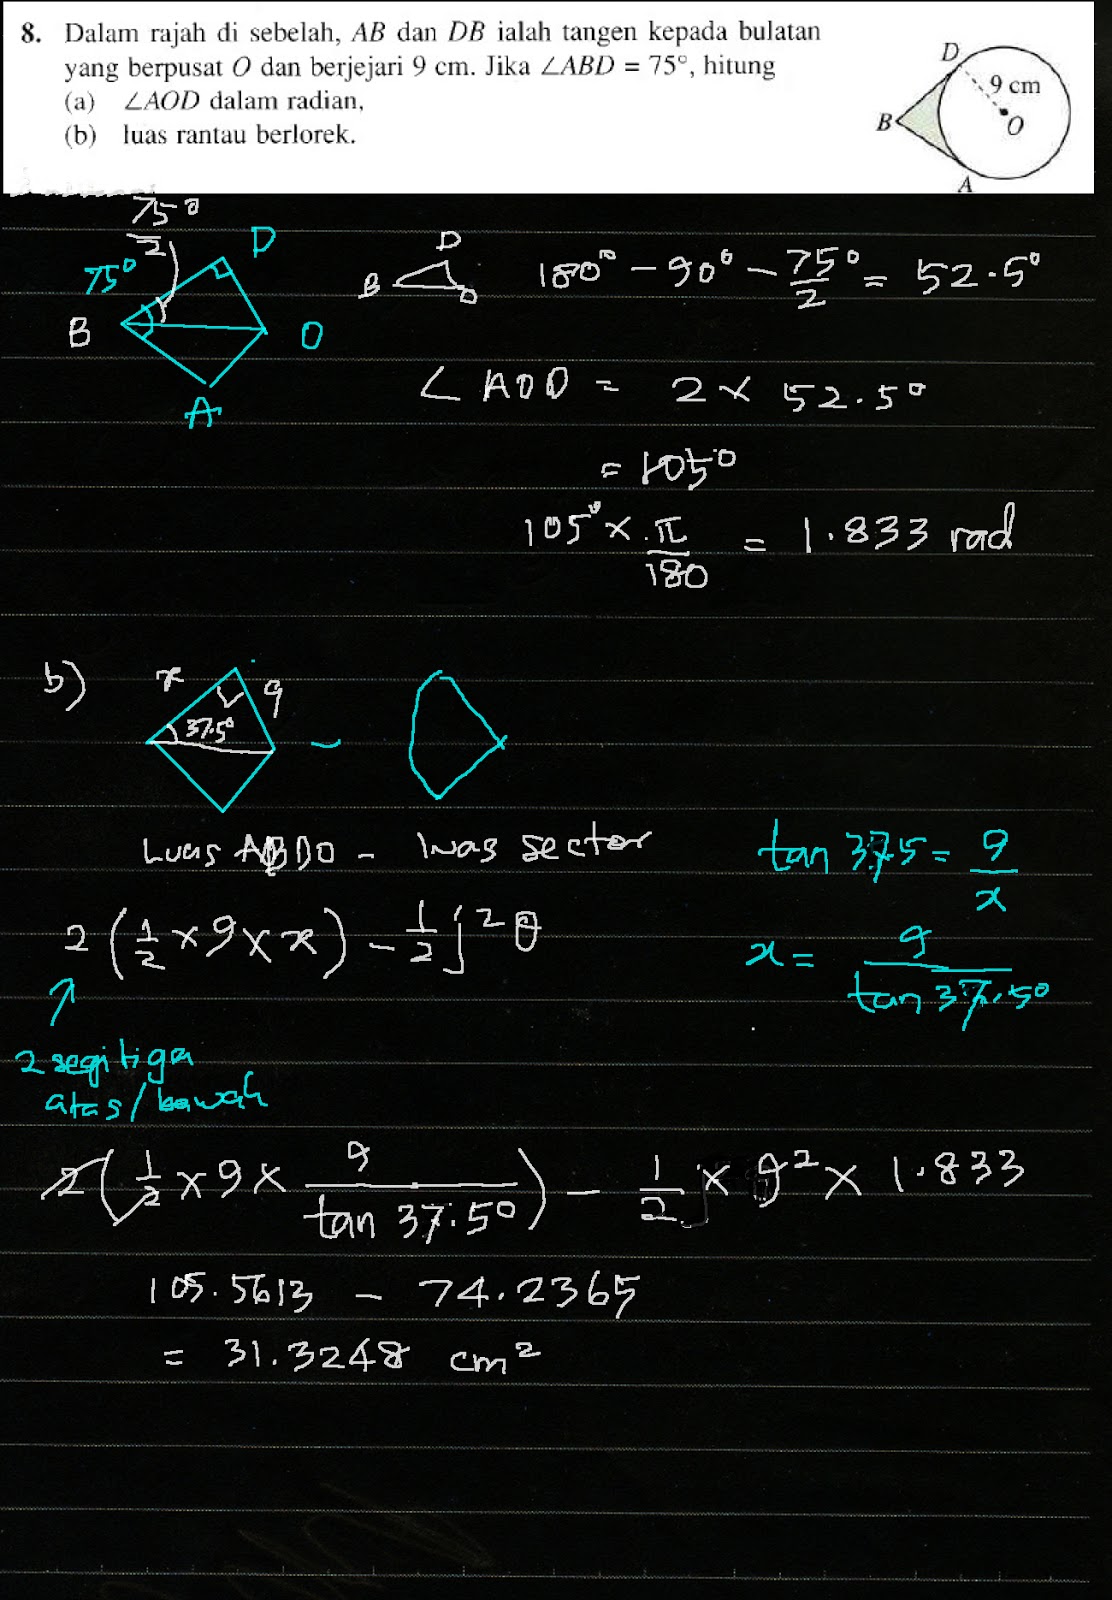 8. Dalam rajah di sebelah, AB dan DB ialah tangen kepada bulatan
yang berpusat O dan berjejari 9 cm. Jika ∠ABD = 75°, hitung
(a) ∠AOD dalam radian,
(b) luas rantau berlorek.
D
9 cm
B
O
A
75°/2
75°
D
B
O
A
D
B
O
180° - 90° - 75°/2 = 52.5°
∠AOD = 2 × 52.5°
= 105°
105° × π/180 = 1.833 rad
b)
x
9
37.5°
-
Luas ABDO - luas sector
tan 37.5 = 9/x
2(1/2 × 9 × x) - 1/2 j²θ
x = 9/tan 37.5°
2 segitiga
atas/bawah
2(1/2 × 9 × 9/tan 37.5°) - 1/2 × 9² × 1.833
105.5613 - 74.2365
= 31.3248 cm²